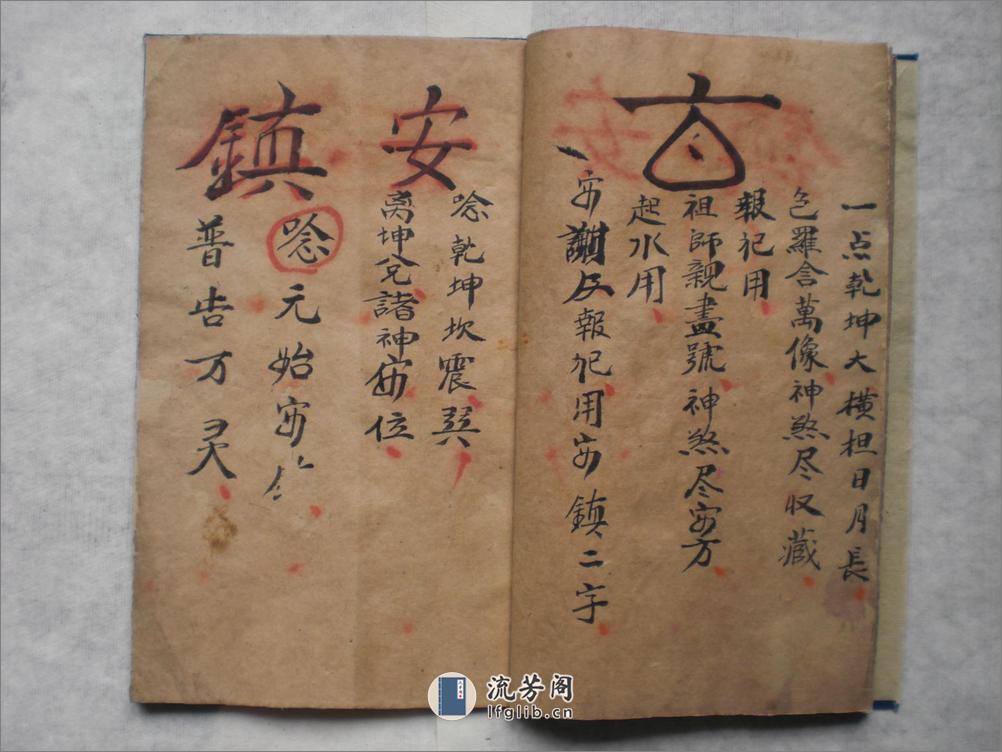 一点乾坤大橫担日月長
包羅含萬像神煞尽収藏
報祀用
祖師親畫號神煞尽安方
起水用
一安謝及報祀用安鎮二字
安
唸乾坤坎震巽
离坤兑諸神安位
鎮
唸元始安
普告万灵
流芳阁
lfglib.cn